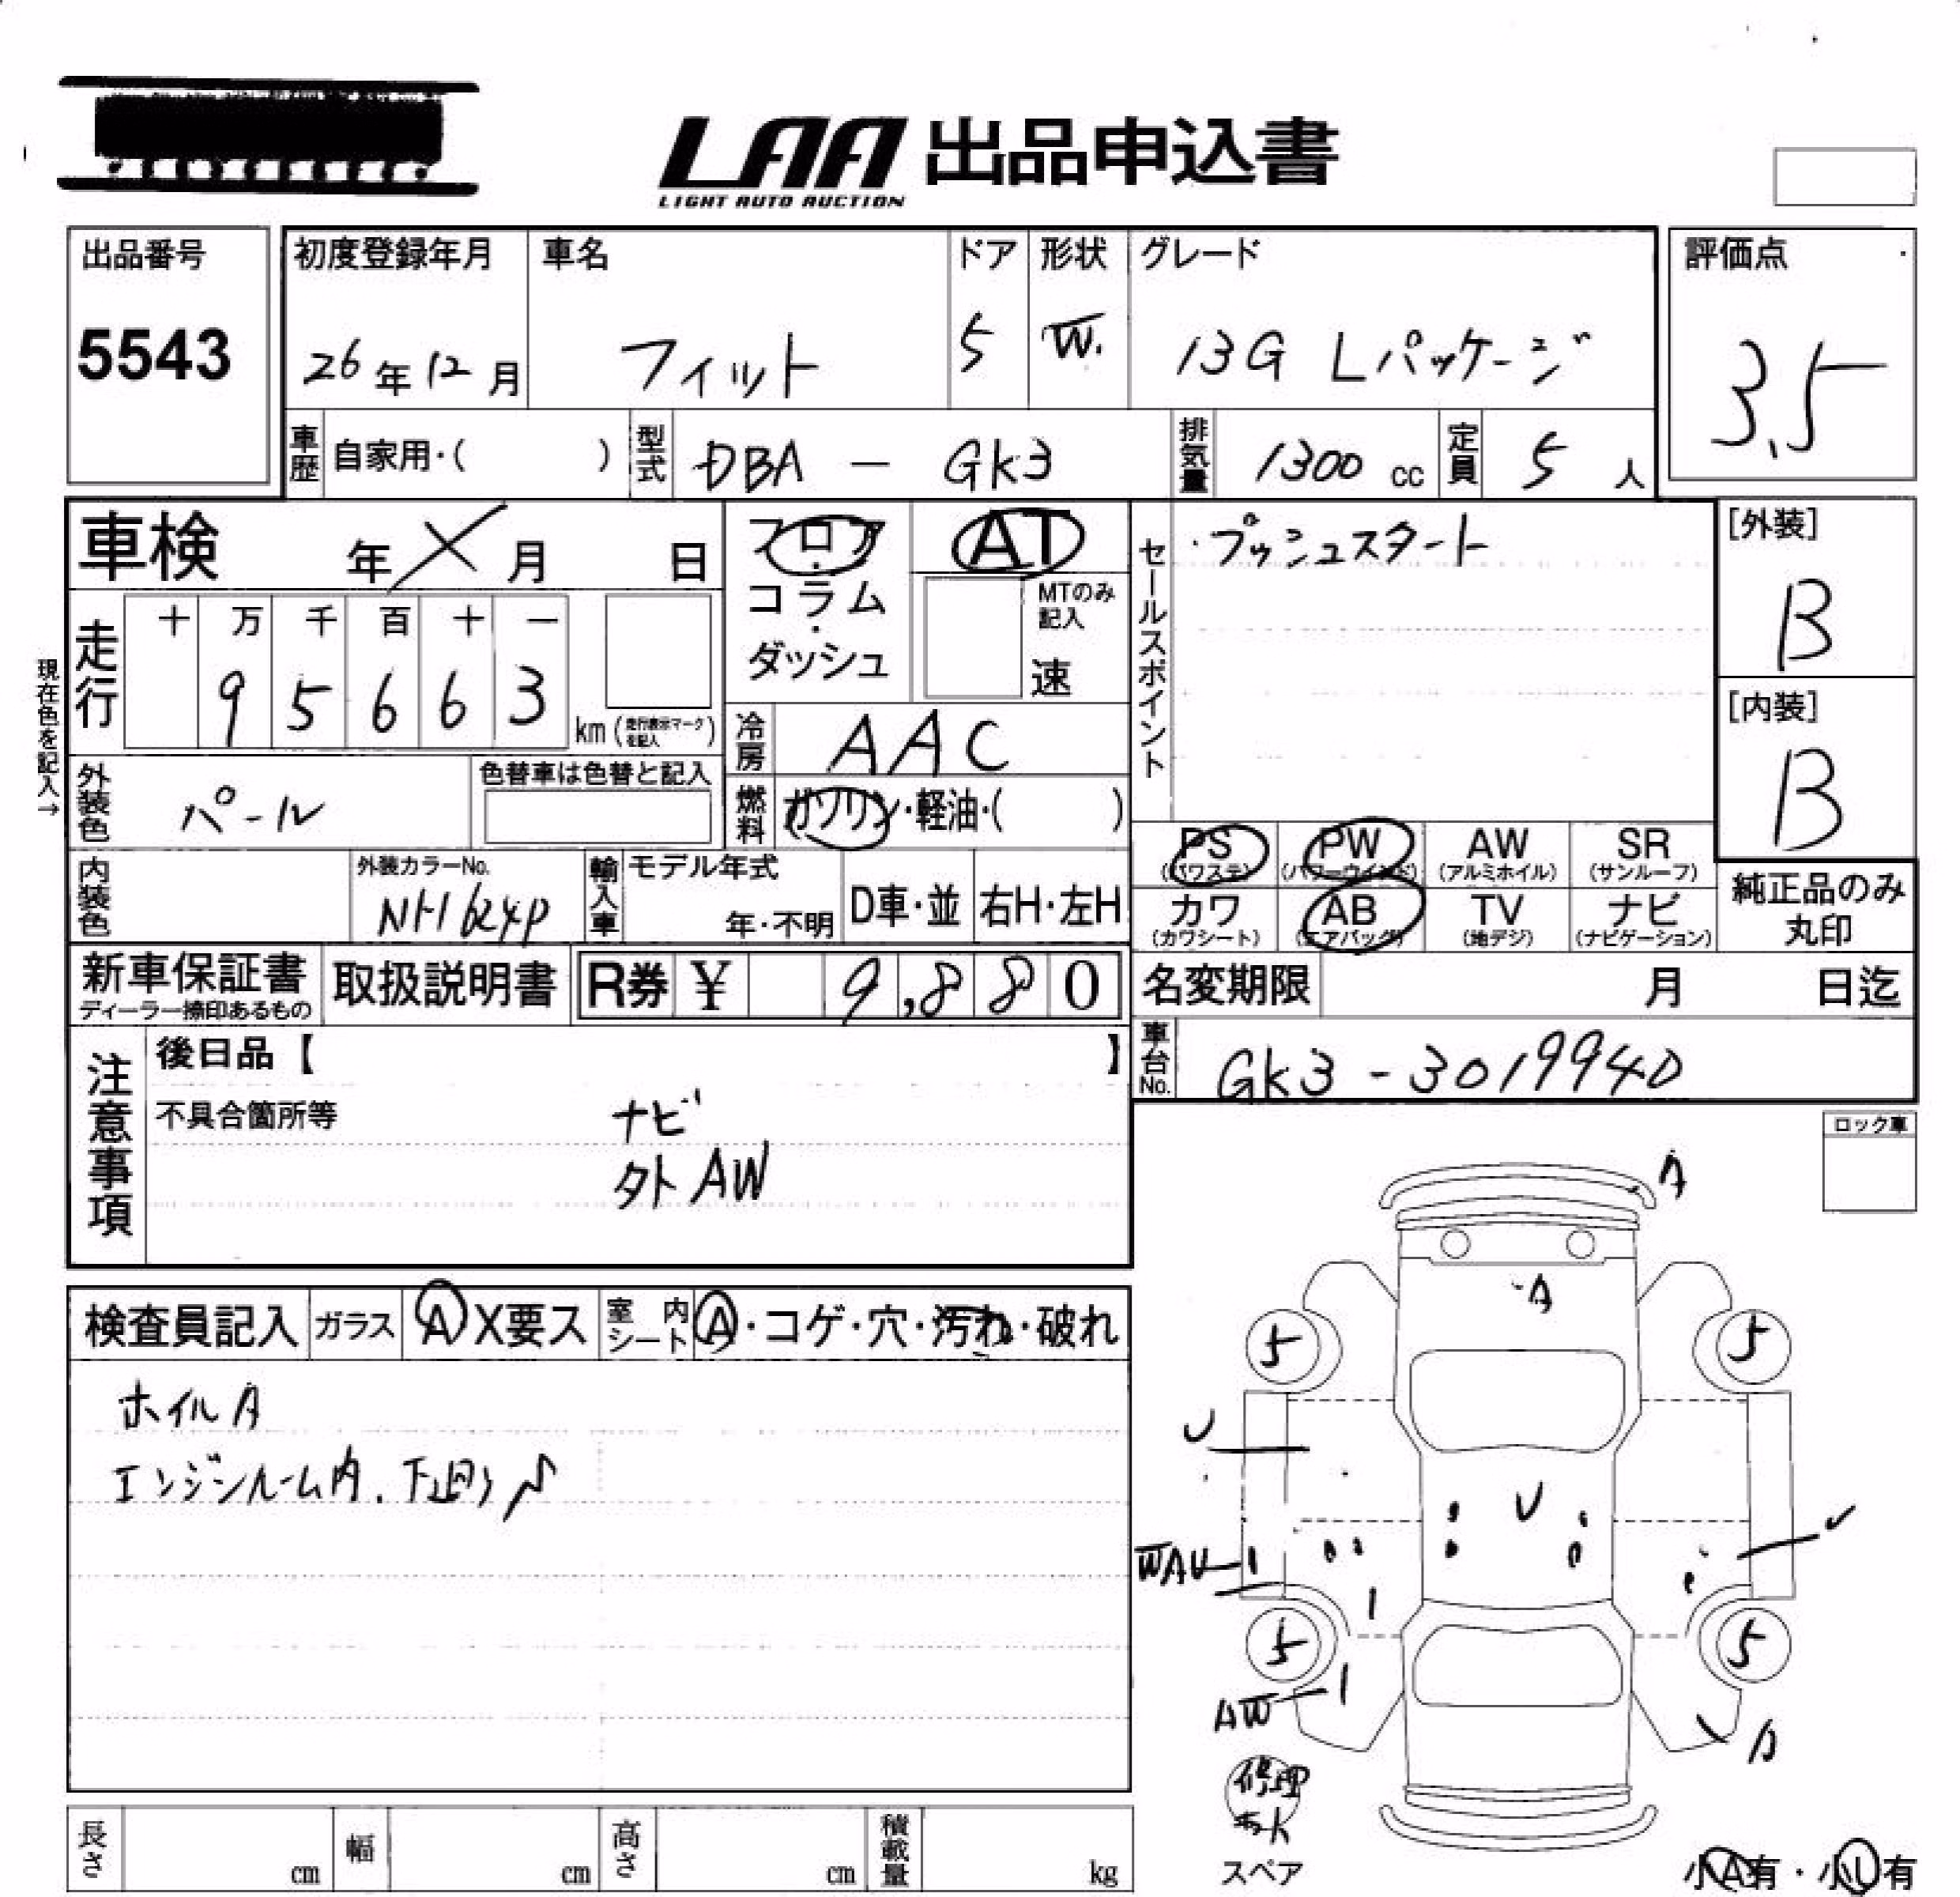 LAA 出品申込書
LIGHT AUTO AUCTION
出品番号
5543
初度登録年月
26年12月
車名
フィット
ドア
5
形状
W.
グレード
13G Lパッケージ
評価点
3.5
車歴 自家用・( )
型式 DBA - GK3
排気量 1300 cc
定員 5 人
車検 年 月 日
フロア・コラム・ダッシュ
AT
MTのみ記入
速
セールスポイント
・プッシュスタート
[外装]
B
[内装]
B
現在色を記入→
走行
十 万 千 百 十 一
9 5 6 6 3
km (走行表示マークを記入)
冷房 AAC
外装色 パール
色替車は色替と記入
燃料 ガソリン・軽油・( )
PS (パワステ)
PW (パワーウインド)
AW (アルミホイル)
SR (サンルーフ)
カワ (カワシート)
AB (エアバッグ)
TV (地デジ)
ナビ (ナビゲーション)
純正品のみ丸印
内装色
外装カラーNo.
NH624P
輸入車
モデル年式
年・不明
D車・並
右H・左H
新車保証書
ディーラー捺印あるもの
取扱説明書
R券 ¥ 9,880
名変期限 月 日迄
車台No. GK3-3019940
注意事項
後日品【 】
不具合箇所等
ナビ
外AW
ロック車
検査員記入
ガラス A X要ス
室内シート A・コゲ・穴・汚れ・破れ
ホイルA
エンジンルーム内、下廻り
A
A
5
5
U
U
WAU
5
5
AW
A
修理キット
スペア
小A有・小U有
長さ cm
幅 cm
高さ cm
積載量 kg